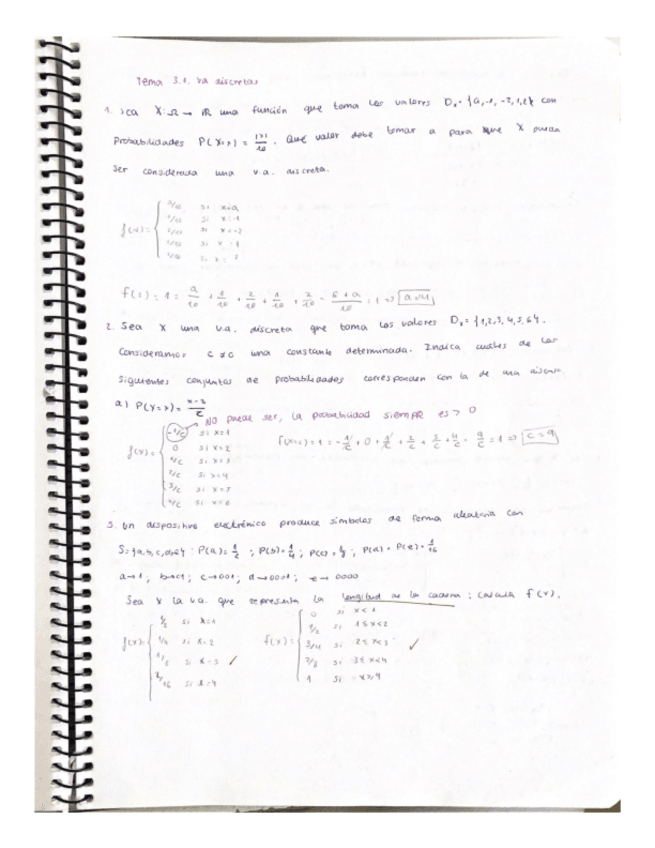 Tema 3.1. va discretas
1. Sea X: Ω → ℝ una función que toma los valores Dx = {a, -1, -2, 1, 2} con
Probabilidades P(X=x) = |x|/10. Qué valor debe tomar a para que X pueda
ser considerada una v.a. discreta.
si x=a
si x=-1
f(x) = si x=-2
si x=1
si x=2
f(x) = 1 = a/10 + 1/10 + 2/10 + 1/10 + 2/10 = 6+a/10 = 1 =>
2. Sea X una v.a. discreta que toma los valores Dx = {1,2,3,4,5,6}.
Consideramos c ≠ 0 una constante determinada. Indica cuáles de las
siguientes conjuntos de probabilidades corresponden con la de una
a) P(X=x) = x-2/c
NO puede ser, la probabilidad siempre es > 0
-1/c si x=1
0 si x=2
f(x) = 1/c si x=3
2/c si x=4
3/c si x=5
4/c si x=6
= 1 = -1/c + 0 + 1/c + 2/c + 3/c + 4/c = 9/c = 1 => c=9
3. Un dispositivo electrónico produce símbolos de forma aleatoria con
S={a,b,c,d,e} : P(a)=1/2 ; P(b)=1/4 ; P(c)=1/8 ; P(d)=P(e)=1/16
a→1 ; b→01 ; c→001 ; d→0001 ; e→0000
Sea X la v.a. que representa la longitud de la cadena ; calcula F(x).
1/2 si x=1
f(x) = 1/4 si x=2
1/8 si x=3 ✓
2/16 si x=4
0 si x<1
1/2 si 1≤x<2
F(x) = 3/4 si 2≤x<3 ✓
7/8 si 3≤x<4
1 si x≥4